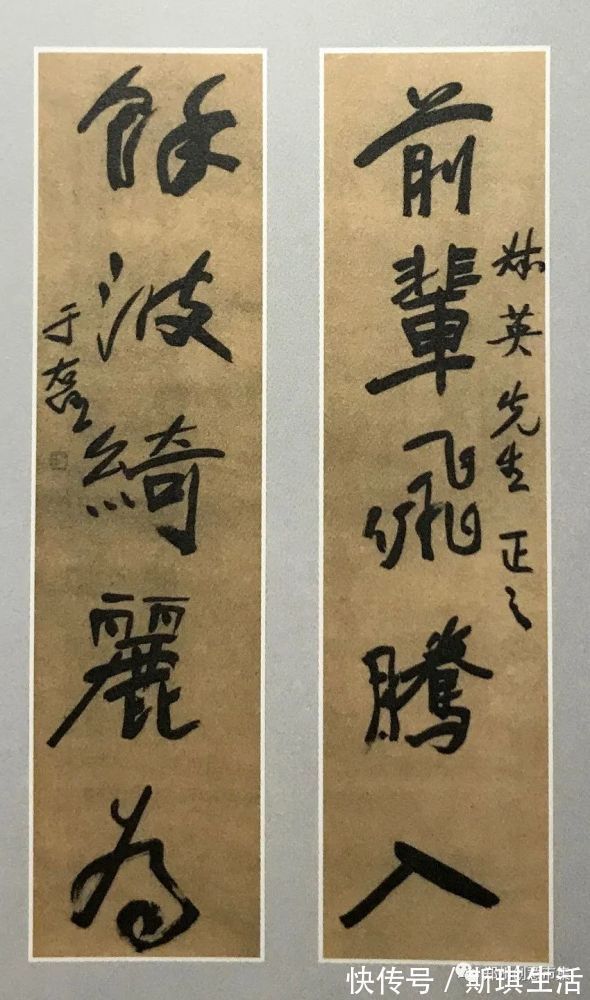 英先生正之
前輩飛騰入
餘波綺麗為
于右任
快传号/斯琪生活